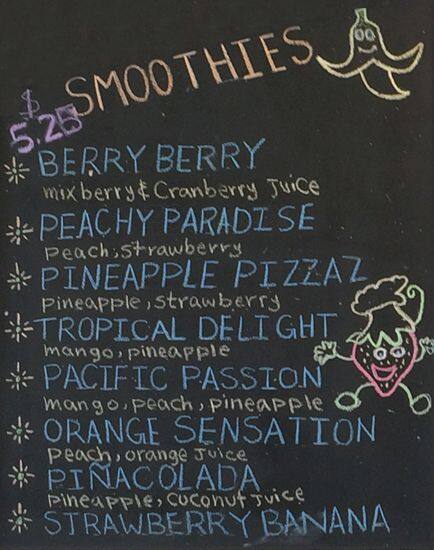 SMOOTHIES
$
5.25
BERRY BERRY
mix berry & Cranberry Juice
PEACHY PARADISE
Peach, strawberry
PINEAPPLE PIZZAZ
Pineapple, strawberry
TROPICAL DELIGHT
mango, pineapple
PACIFIC PASSION
mango, peach, pineapple
ORANGE SENSATION
Peach, orange Juice
PIÑACOLADA
Pineapple, Coconut Juice
STRAWBERRY BANANA